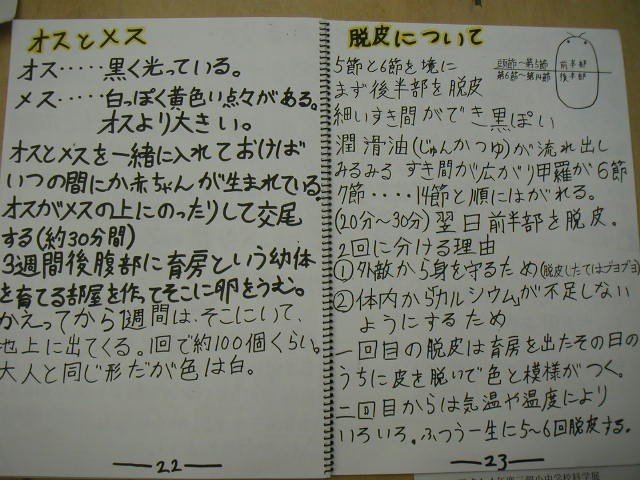 オスとメス
オス‥‥‥黒く光っている。
メス‥‥‥白っぽく黄色い点々がある。
オスより大きい。
オスとメスを一緒に入れておけば
いつの間にか赤ちゃんが生まれている。
オスがメスの上にのったりして交尾
する(約30分間)
3週間後腹部に育房という幼体
を育てる部屋を作ってそこに卵をうむ。
かえってから1週間は、そこにいて、
地上に出てくる。1回で約100個くらい。
大人と同じ形だが色は白。
22
脱皮について
頭節〜第5節 前半部
第6節〜第14節 後半部
5節と6節を境に
まず後半部を脱皮
細いすき間ができ黒ぽい
潤滑油(じゅんかつゆ)が流れ出し
みるみるすき間が広がり甲羅が6節
7節‥‥14節と順にはがれる。
(20分〜30分)翌日前半部を脱皮。
2回に分ける理由
①外敵から身を守るため(脱皮したてはブヨブヨ)
②体内から「カルシウム」が不足しない
ようにするため
一回目の脱皮は育房を出たその日の
うちに皮を脱いで色と模様がつく。
二回目からは気温や温度により
いろいろ。ふつう一生に5〜6回脱皮する。
23